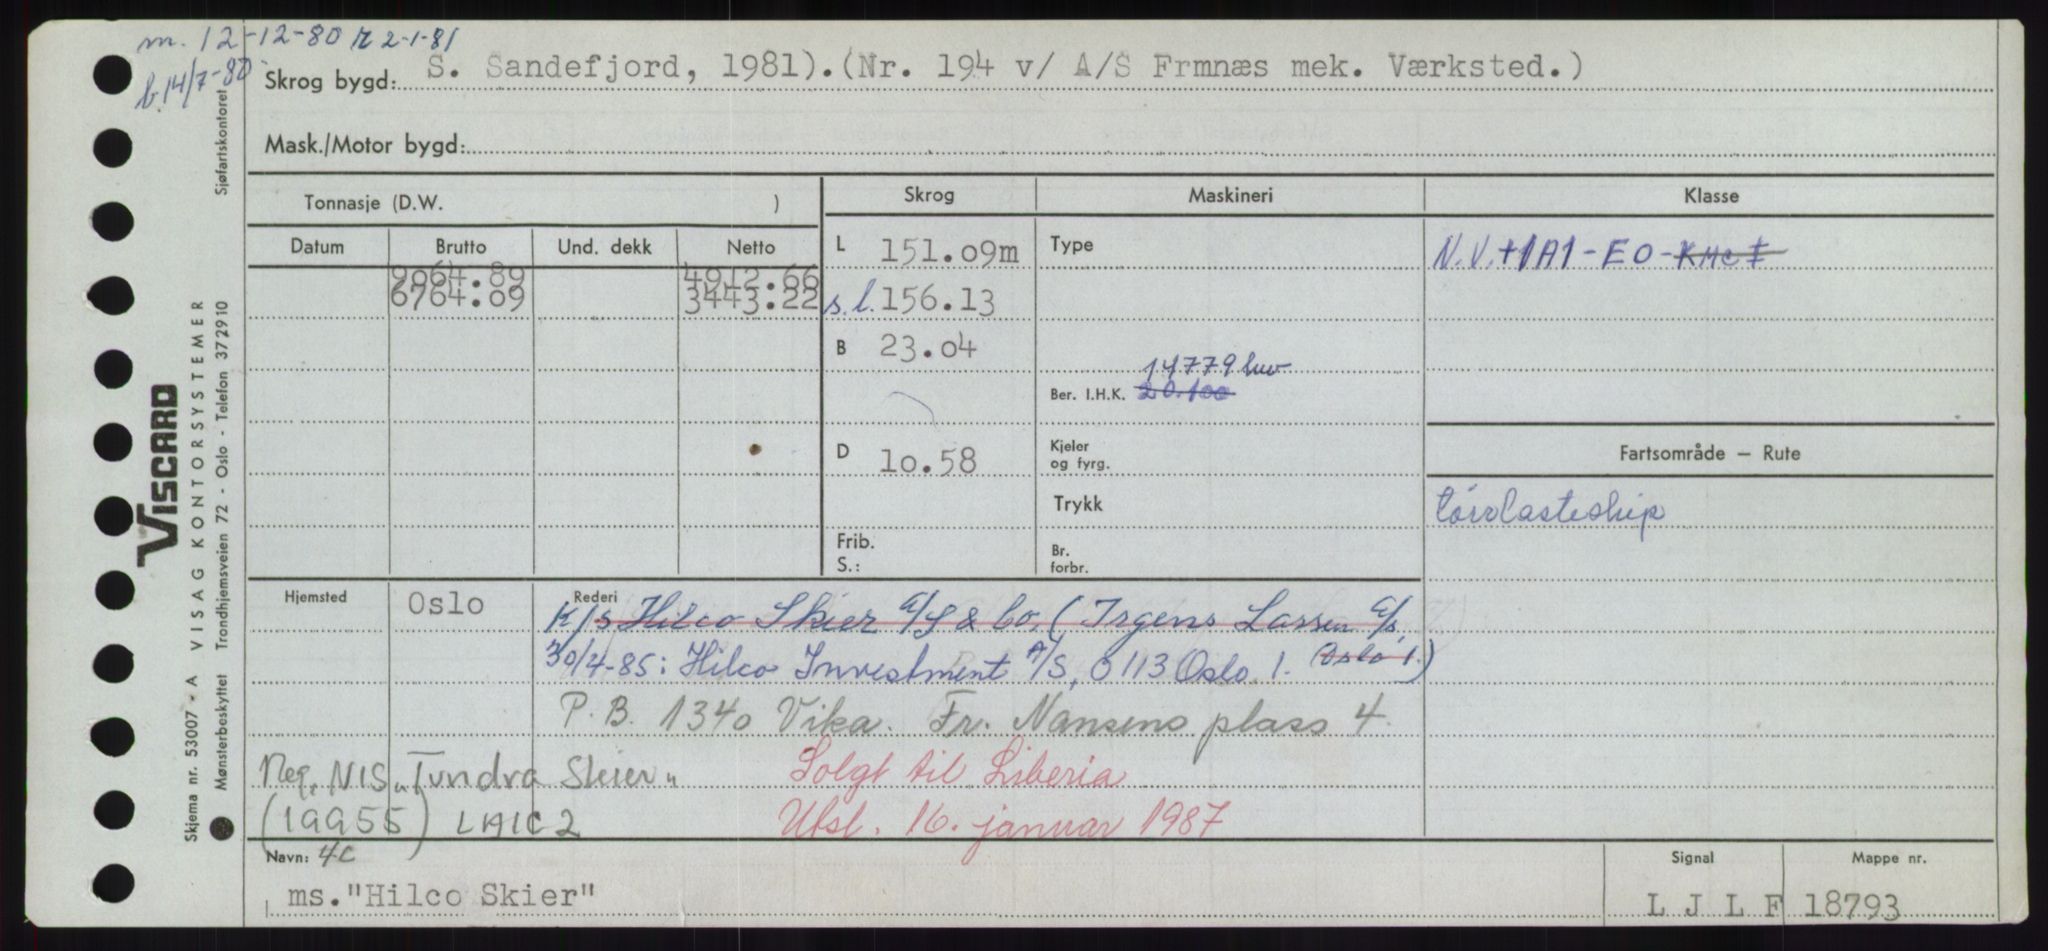 m. 12-12-80 R 2-1-81
b. 14/7-80
Skrog bygd: S. Sandefjord, 1981).(Nr. 194 v/ A/S Frmnæs mek. Værksted.)
Mask./Motor bygd:
Tonnasje (D.W. )
Skrog
Maskineri
Klasse
Datum
Brutto
Und. dekk
Netto
9064.89 4912.66
6764.09 3443.22
L 151.09m
s.l. 156.13
B 23.04
D 10.58
Frib.
S.:
Type
14779 hw
Ber. I.H.K. 20.100
Kjeler
og fyrg.
Trykk
Br.
forbr.
N.V. +1A1 - EO - KMC I
Fartsområde — Rute
tørrlasteship
Hjemsted Oslo
Rederi
K/S Hilco Skier A/S & Co. (Irgens Larsen A/S,
Oslo 1.)
30/4-85: Hilco Investment A/S, 0113 Oslo 1.
P.B. 1340 Vika. Fr. Nansens plass 4.
Reg. NIS "Tundra Skier"
(19955) LAIC2
Solgt til Liberia
Utsl. 16. januar 1987
Navn: 4C
ms."Hilco Skier"
Signal
L J L F
Mappe nr.
18793
VISCARD
VISAG KONTORSYSTEMER
Skjema nr. 53007 - A
Mønsterbeskyttet Trondhjemsveien 72 - Oslo - Telefon 372910
Sjøfartskontoret